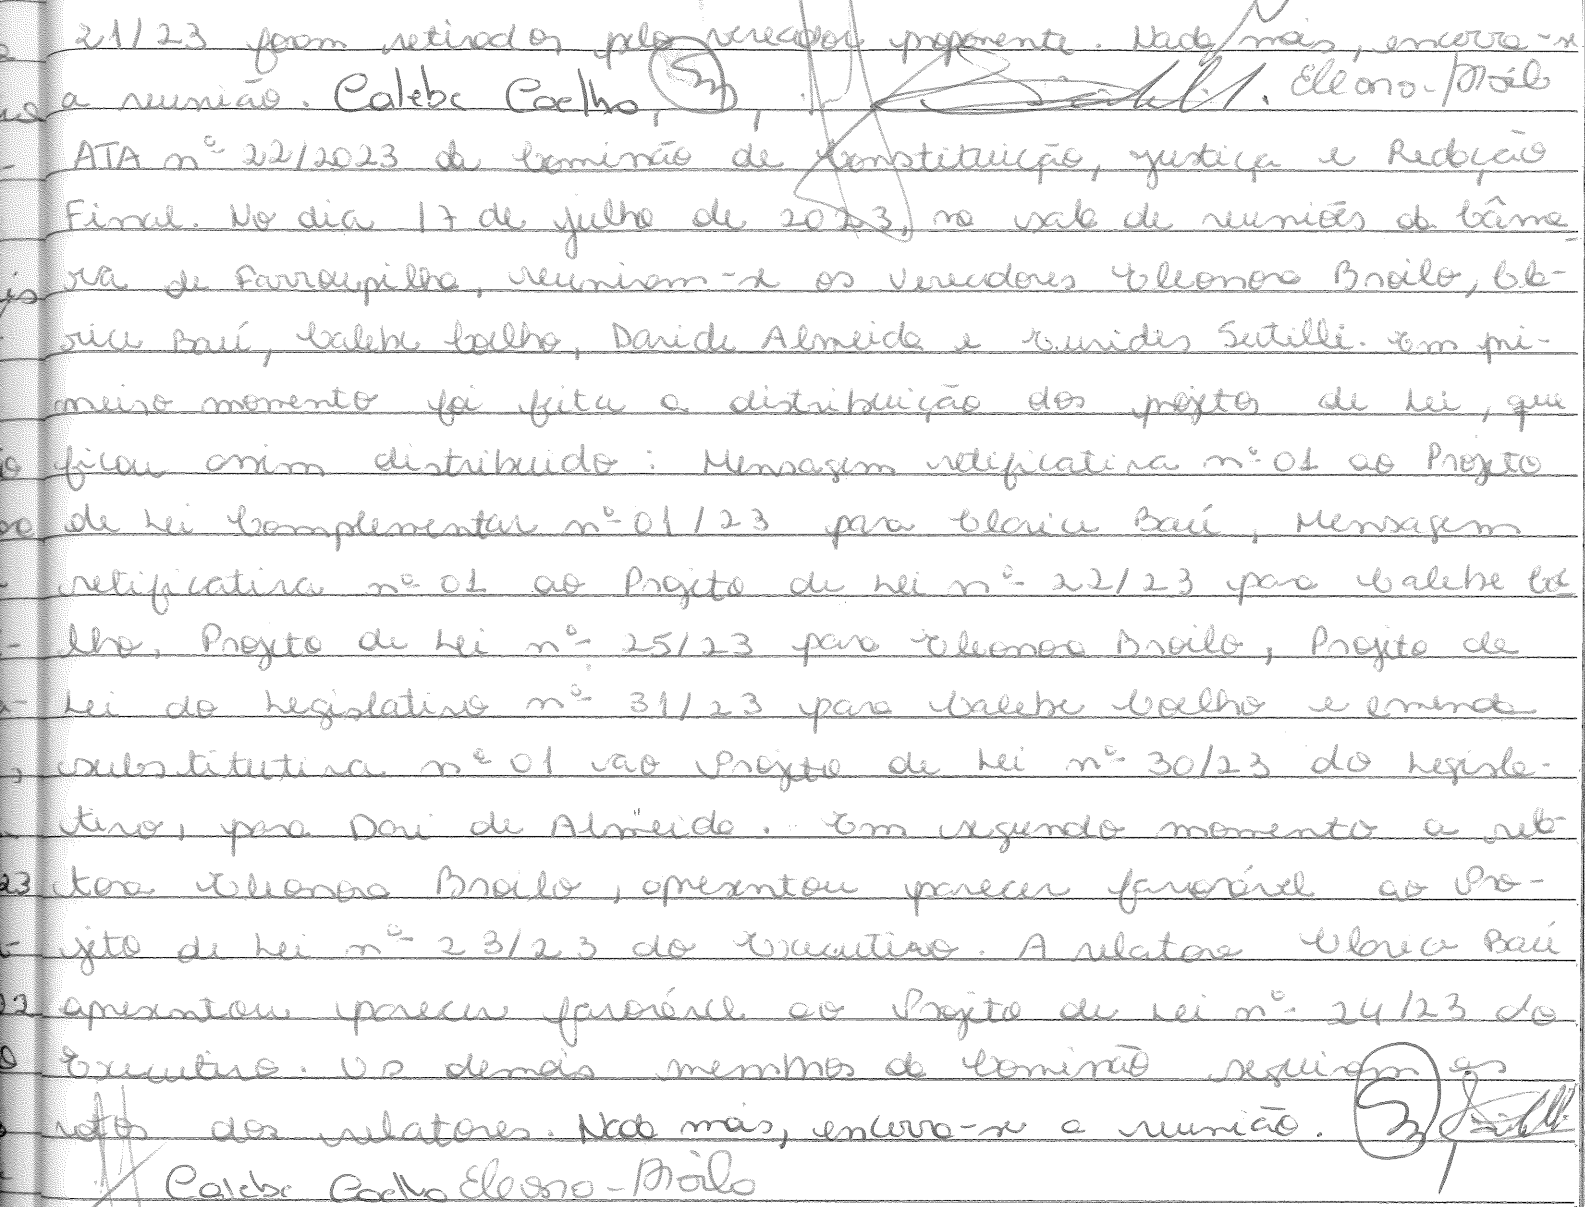 21/23 foram retirados pelo vereador proponente. Nada mais, encerra-se
a reunião. Calebe Coelho, , Eleono-Bróilo
ATA nº 22/2023 da Comissão de Constituição, Justiça e Redação
Final. No dia 17 de julho de 2023, na sala de reuniões da Câma-
ra de Farroupilha, reuniram-se os vereadores Eleonora Broilo, Cla-
rice Baú, Calebe Coelho, Davi de Almeida e Eurides Sutilli. Em pri-
meiro momento foi feita a distribuição dos projetos de Lei, que
ficou assim distribuido: Mensagem retificativa nº 01 ao Projeto
de Lei Complementar nº 01/23 para Clarice Baú, Mensagem
retificativa nº 01 ao Projeto de Lei nº 22/23 para Calebe Coe
lho, Projeto de Lei nº 25/23 para Eleonora Broilo, Projeto de
Lei do Legislativo nº 31/23 para Calebe Coelho e emenda
substitutiva nº 01 ao Projeto de Lei nº 30/23 do Legisla-
tivo, para Davi de Almeida. Em segundo momento a rela-
tora Eleonora Broilo, apresentou parecer favorável ao Pro-
jeto de Lei nº 23/23 do Executivo. A relatora Clarice Baú
apresentou parecer favorável ao Projeto de Lei nº 24/23 do
Executivo. Os demais membros da Comissão seguiram os
votos dos relatores. Nada mais, encerra-se a reunião.
Calebe Coelho Eleono-Bróilo